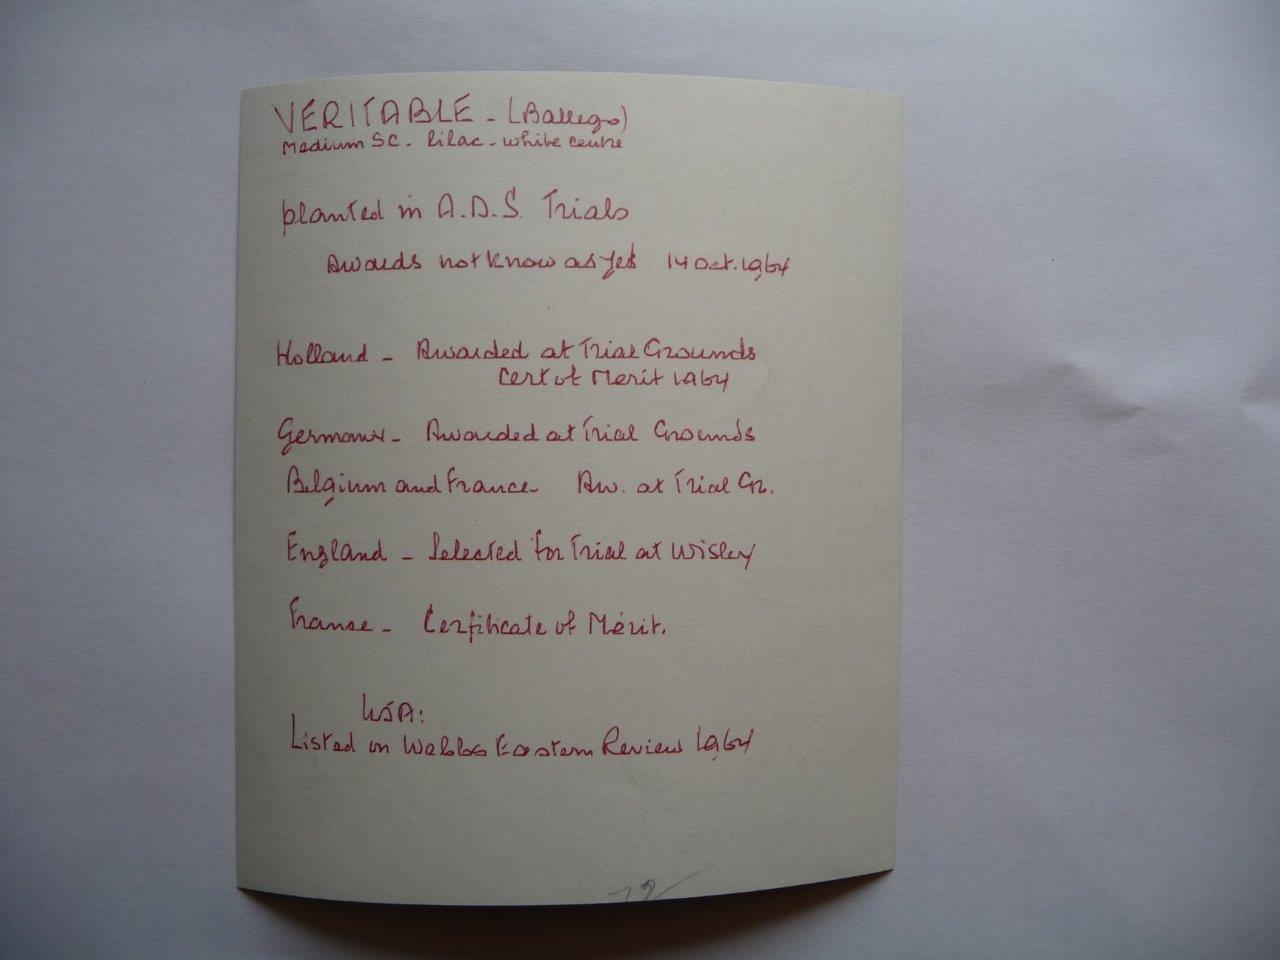 VERITABLE - (Ballego)
Medium SC - lilac - white centre
planted in A.D.S. Trials
Awards not know as yet 14 Oct. 1964
Holland - Awarded at Trial Grounds
Cert of Merit 1964
Germany - Awarded at Trial Grounds
Belgium and France Aw. at Trial Gr.
England - Selected for Trial at Wisley
Franse - Cerfificate of Mérit.
USA:
Listed in Webbs Eastern Review 1964